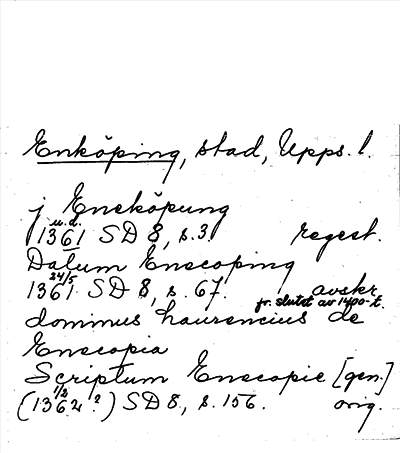 Enköping, stad, Upps. l.
j Eneköpung
u.d.
1361 SD 8, s. 3. regest.
Dalum Enecoping
24/5
1361 SD 8, s. 67. avskr.
fr. slutet av 1400-t.
dominus Laurencius de
Enecopia
Scriptum Enecopie [gen.]
1/2
(1362?) SD 8, s. 156. orig.